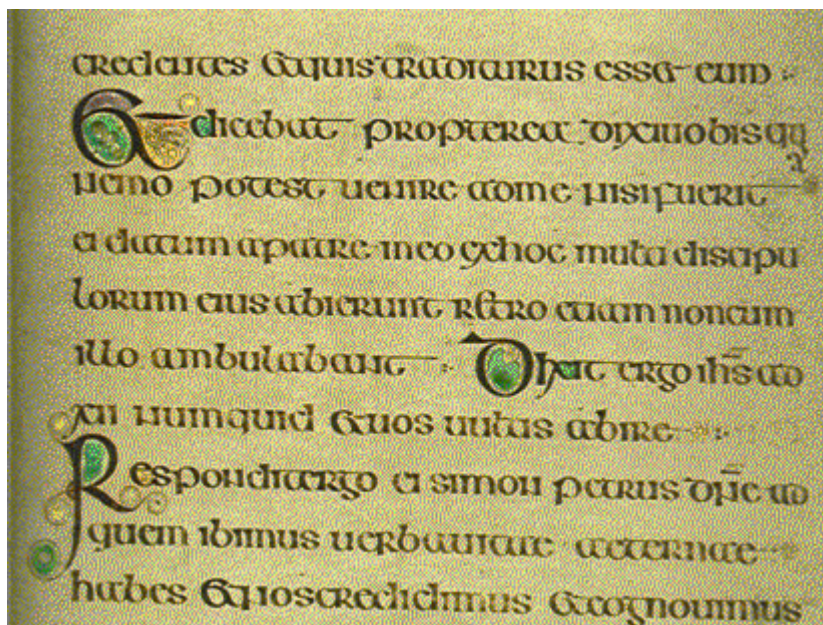 credentes et quis traditurus esset eum :
Et dicebat propterea dixi uobis quia
nemo potest uenire ad me nisi fuerit
ei datum a patre · in eo ex hoc multi discipu
lorum eius abierunt retro et iam non cum
illo ambulabant : Dixit ergo ihs ad
xii numquid et uos uultis abire :
Respondit ergo ei simon petrus dne ad
quem ibimus uerba uitae aeternae
habes et nos credidimus et cognouimus